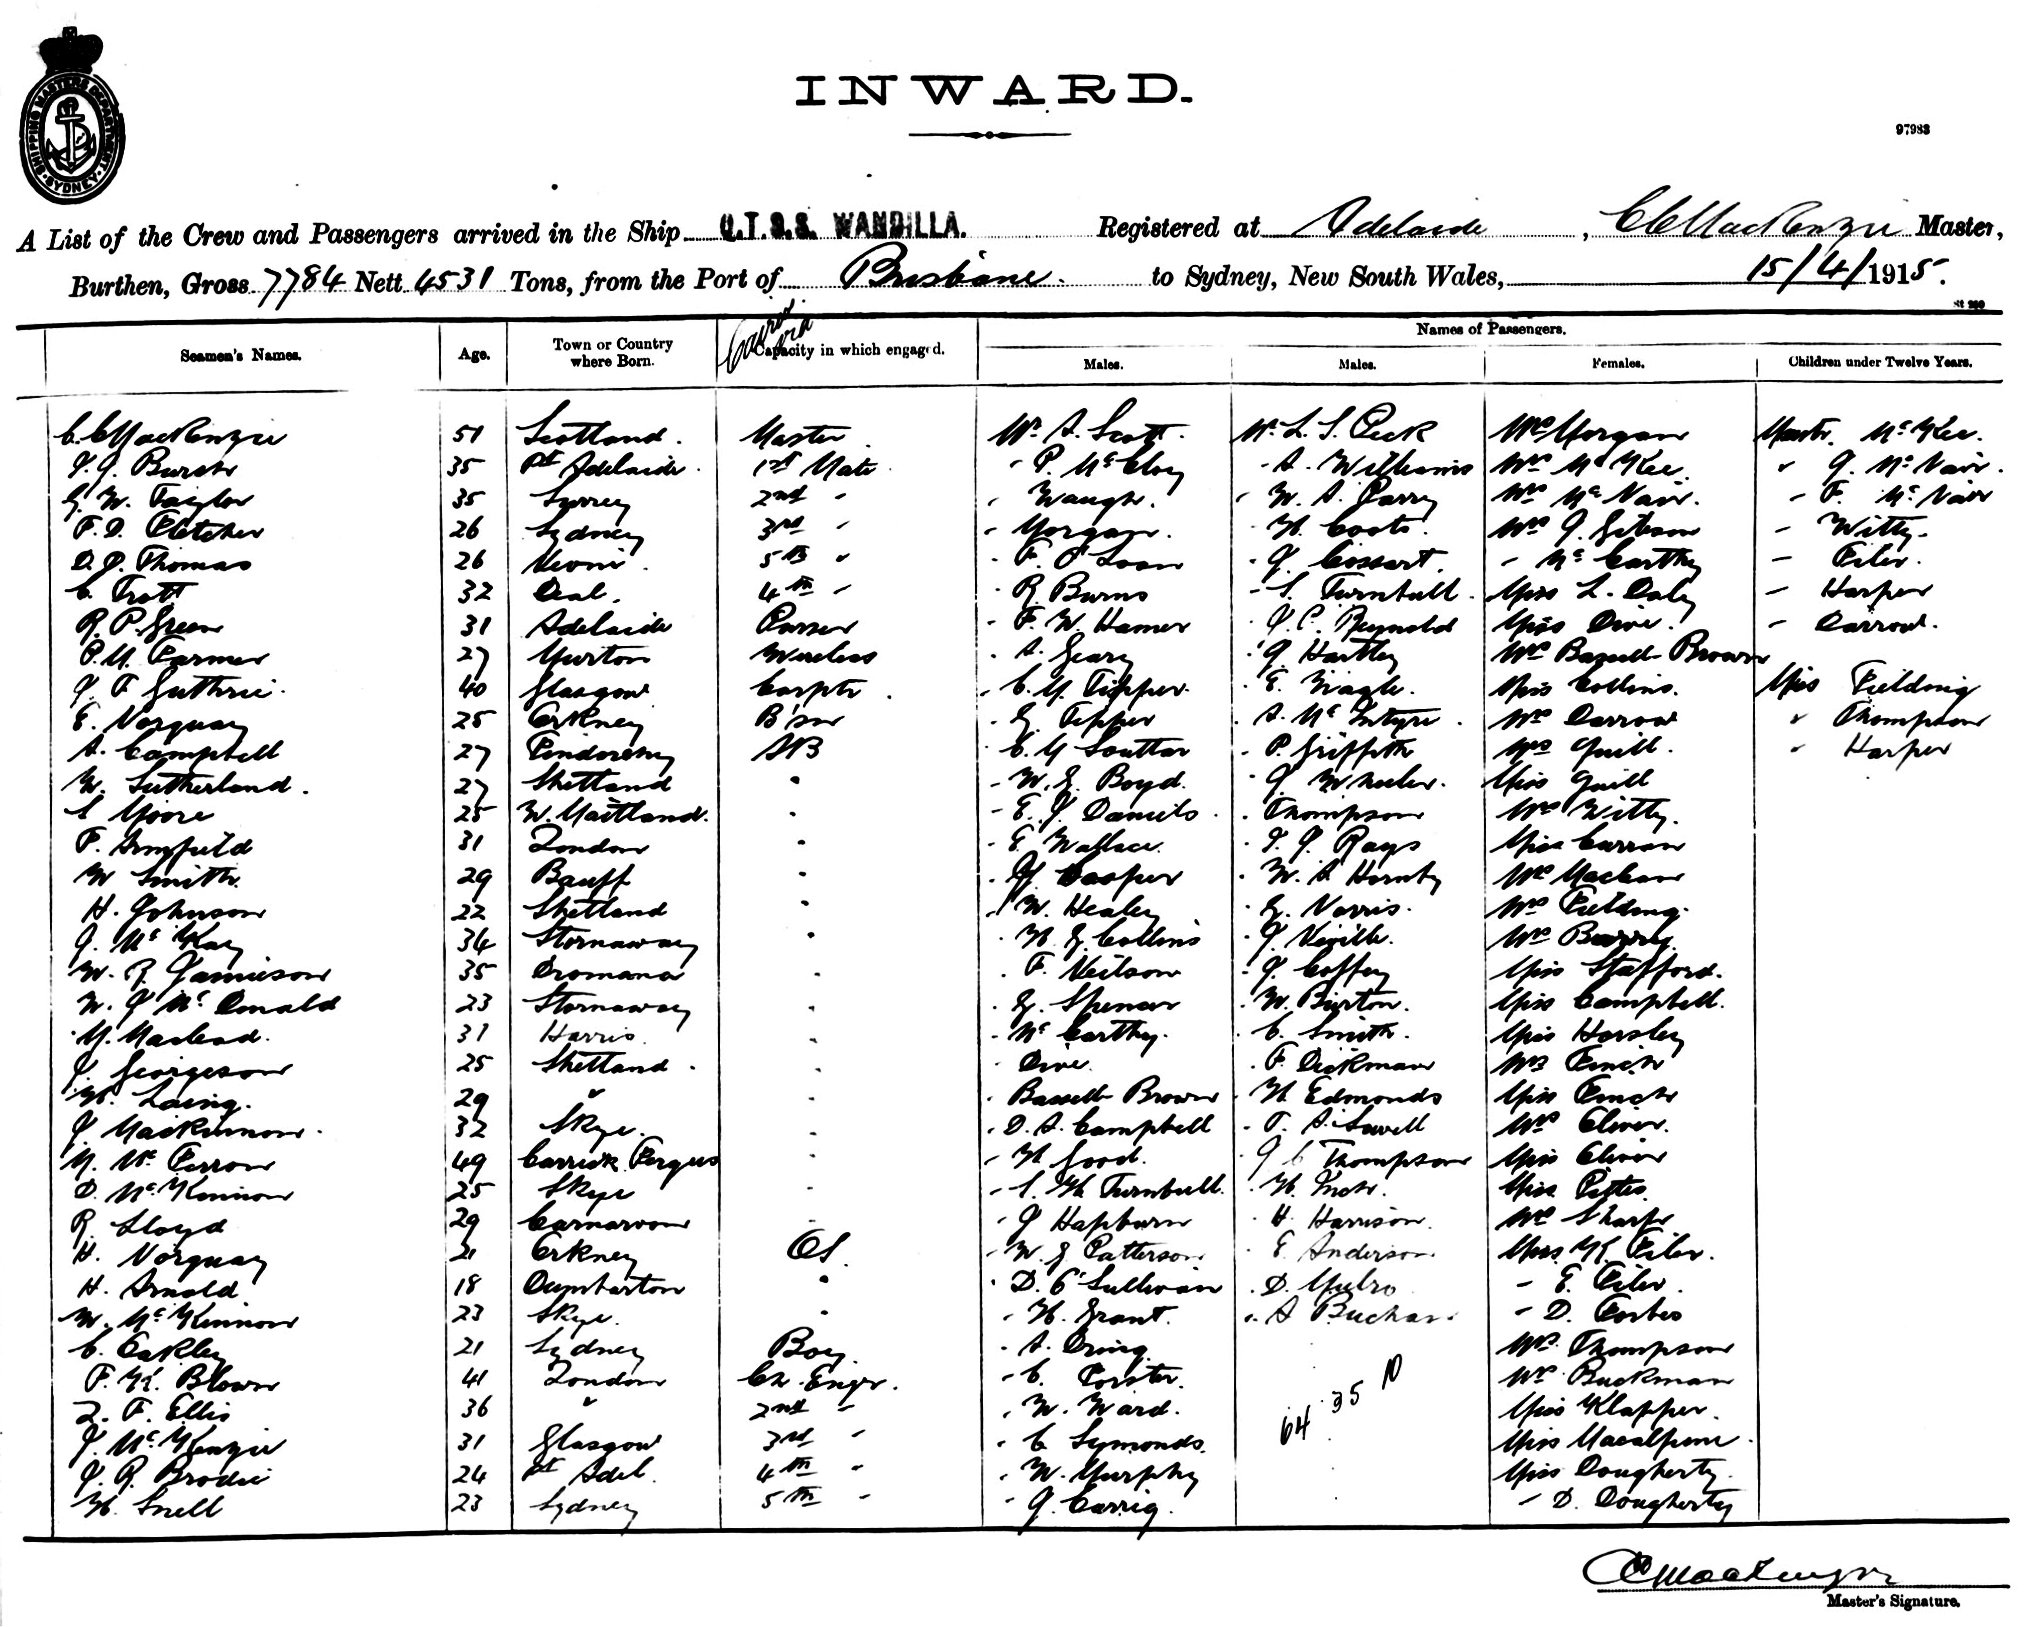 SHIPPING MASTERS DEPARTMENT SYDNEY
INWARD.
97983
A List of the Crew and Passengers arrived in the Ship Q.T.S.S. WANDILLA. Registered at Adelaide, C C MacKenzie Master,
Burthen, Gross 7784 Nett 4531 Tons, from the Port of Brisbane. to Sydney, New South Wales, 15/4/1915.
Seamen's Names. Age. Town or Country where Born. Capacity in which engaged. Names of Passengers.
Males. Males. Females. Children under Twelve Years.
C. C MacKenzie 51 Scotland. Master Mr A. Scott. Mr L. S. Peck Mrs Morgan Master Mc Kee.
Burch 35 Pt Adelaide. 1st Mate " P. Mc Cloy " A. Williams Mrs Mc Kee " J. Mc Nair.
G. W. Taylor 35 Surrey 2nd " " Waugh. " W. A. Parry Mrs Mc Nair. " F. Mc Nair
F. D. Fletcher 26 Sydney 3rd " " Morgan. " H. Coots. Mrs J. Gibson " Witty.
D. J. Thomas 26 5th " " F. O'Loan " J. Cossart. " Mc Carthy " Piler.
C. Trott 32 Deal. 4th " " R. Burns " S. Turnbull. Miss L. Daly " Harper
R. P. Green 31 Adelaide Purser " F. W. Hamer " J. C. Reynold Miss Dive. " Darrow.
P. M. Farmer 27 Murton Wireless " A. Geary " J. Hartley Mrs Bassett Brown
J. F. Guthrie. 40 Glasgow Carptr. " C. M. Tipper. " E. Nagle. Miss Collins. Miss Fielding
E. Norquay 25 Orkney B'sn " G. Tepper " A. Mc Intyre. Mrs Darrow " Thompson
A. Campbell 27 AB " C. M Souttar " P. Griffith Mrs Quill. " Harper
W. Sutherland. 27 Shetland " " W. G. Boyd. " J. Wheeler. Miss Quill
S Moore 25 W. Maitland. " " E. J. Daniels. " Thompson Mrs Witty.
F. Armfield 31 London " " E. Wallace. " J. J. Rays Miss Curran
W Smith. 29 Banff " " Cooper " W. A Hornby Mrs Maclean
H. Johnson 22 Shetland " " W. Healey " G. Norris. Mrs Fielding.
J. Mc Kay 34 Stornaway " " H. G Collins " J. Neville. Mrs Barry.
W. R. Jamieson 35 Dromana " " F. Neilson " J. Coffey Miss Stafford.
W. J Mc Donald 23 Stornaway " " G. Spencer " W. Burton. Miss Campbell.
M. Macleod. 31 Harris. " " Mc Carthy. " C. Smith. Miss Horsley
J. Georgeson 25 Shetland. " " Dive. " F. Dickman Mrs Finch
H. Laing. 29 " " " Bassett Brown " H. Edmonds Miss Finch
J. MacKinnon. 32 Skye. " " D. A. Campbell " T. A. Savell Mrs Oliver.
M. Mc Ferron 49 Carrick Fergus " " H Good. " J C Thompson Miss Oliver
D. Mc Kinnon 25 Skye " " S. H. Turnbull. " H. Miss Pitts.
R. Lloyd 29 Carnarvon " " J Hapburn " H. Harrison. Mrs Sharp
H. Norquay 21 Orkney OS. " W. G Patterson. " E. Anderson Miss M. Piler.
H. Arnold. 18 Dumbarton " " D. O'Sullivan " D. Mulro " E. Piler.
W. Mc Kinnon 23 Skye. " " H. Grant. " A Buchan. " D. Forbes
C. Oakley 21 Sydney Boy. " A. Dring. Mrs Thompson
F. H. Blown 41 London Ch. Engr. " C. Forster. Mrs Buckman
L. F. Ellis 36 " 2nd " " W. Ward. 64 35 10 Miss Klapper.
J. Mc Kenzie 31 Glasgow 3rd " " C Symonds. Miss Macalpine.
J. R. Brodie 24 Pt Adel. 4th " " W. Murphy Miss Dougherty.
H. Snell 23 Sydney 5th " " J. Carrig. " D. Dougherty
C C MacKenzie
Master's Signature.